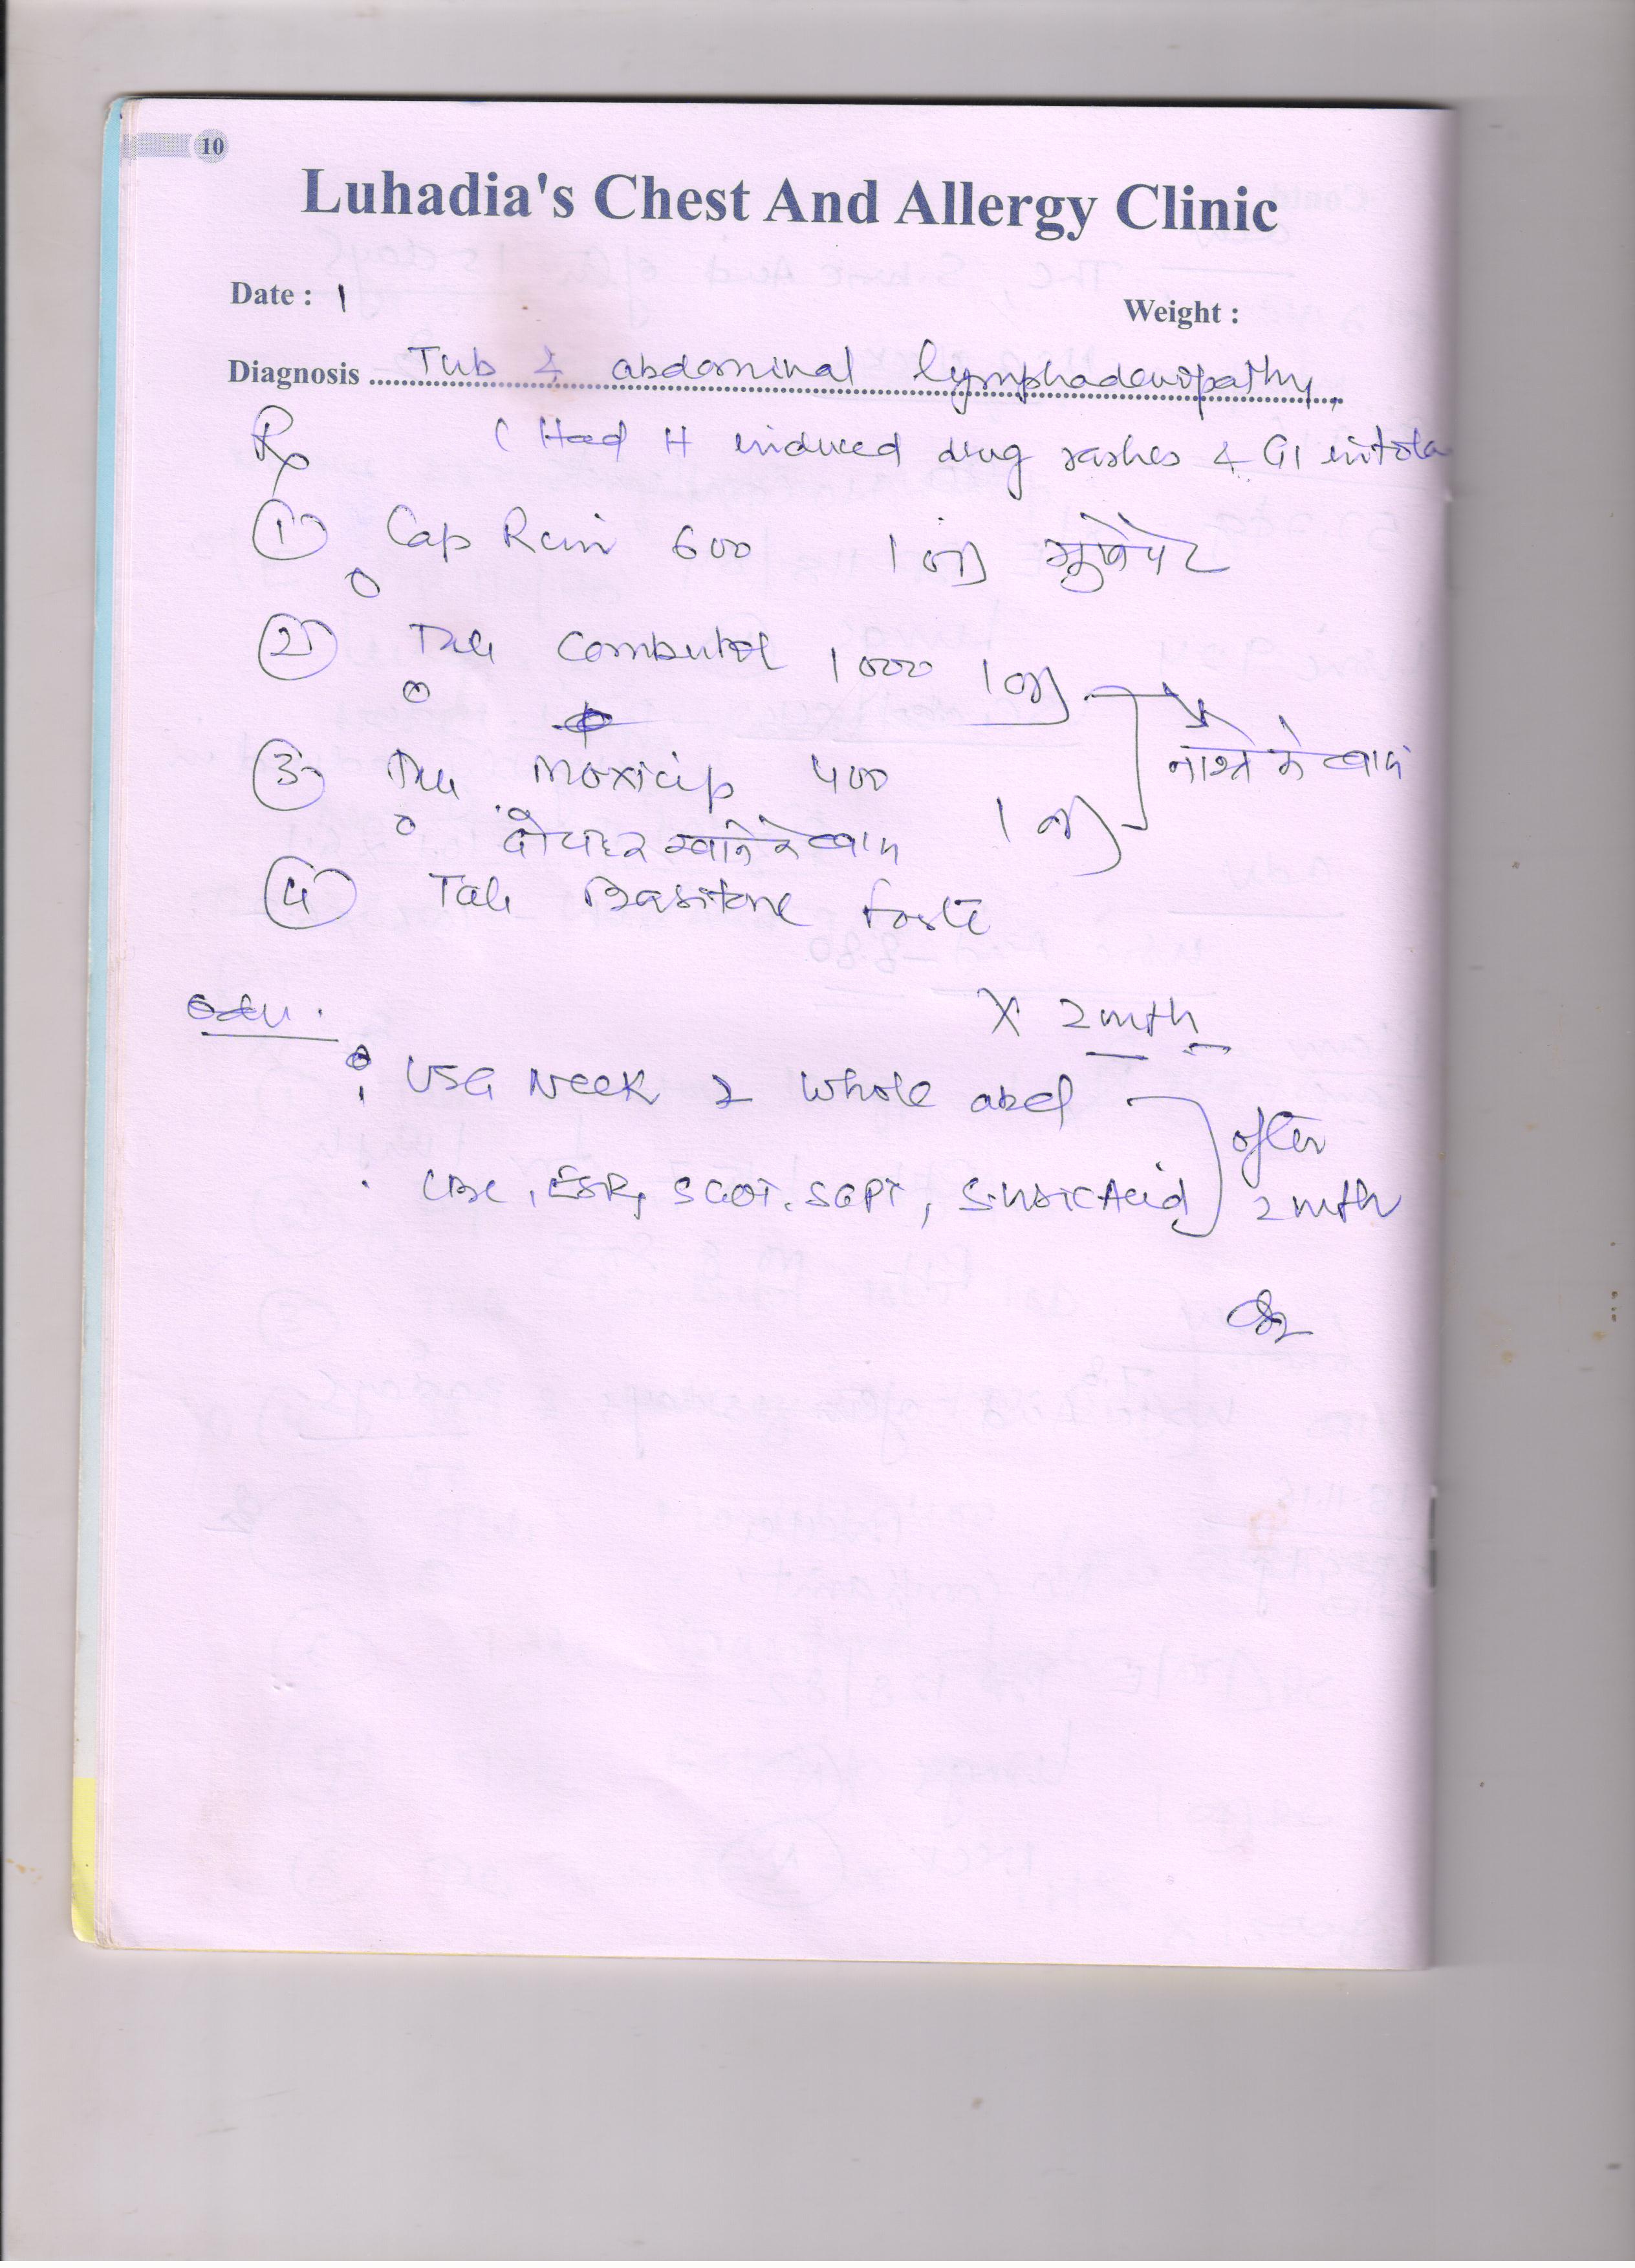 10
Luhadia's Chest And Allergy Clinic
Date : 1
Weight :
Diagnosis Tub & abdominal lymphadenopathy,
Rx ( Had H induced drug rashes & GI intola
① Cap Rcin 600 1 भूखे पेट
② Tab Combutol 1000 1
③ Tab Moxicip 400 1
नाश्ते के बाद
दोपहर खाने के बाद
④ Tab Basitone forte
X 2 mth
USG Neck & Whole abd
after
CBC, ESR, SGOT, SGPT, S. Uric Acid
2 mth